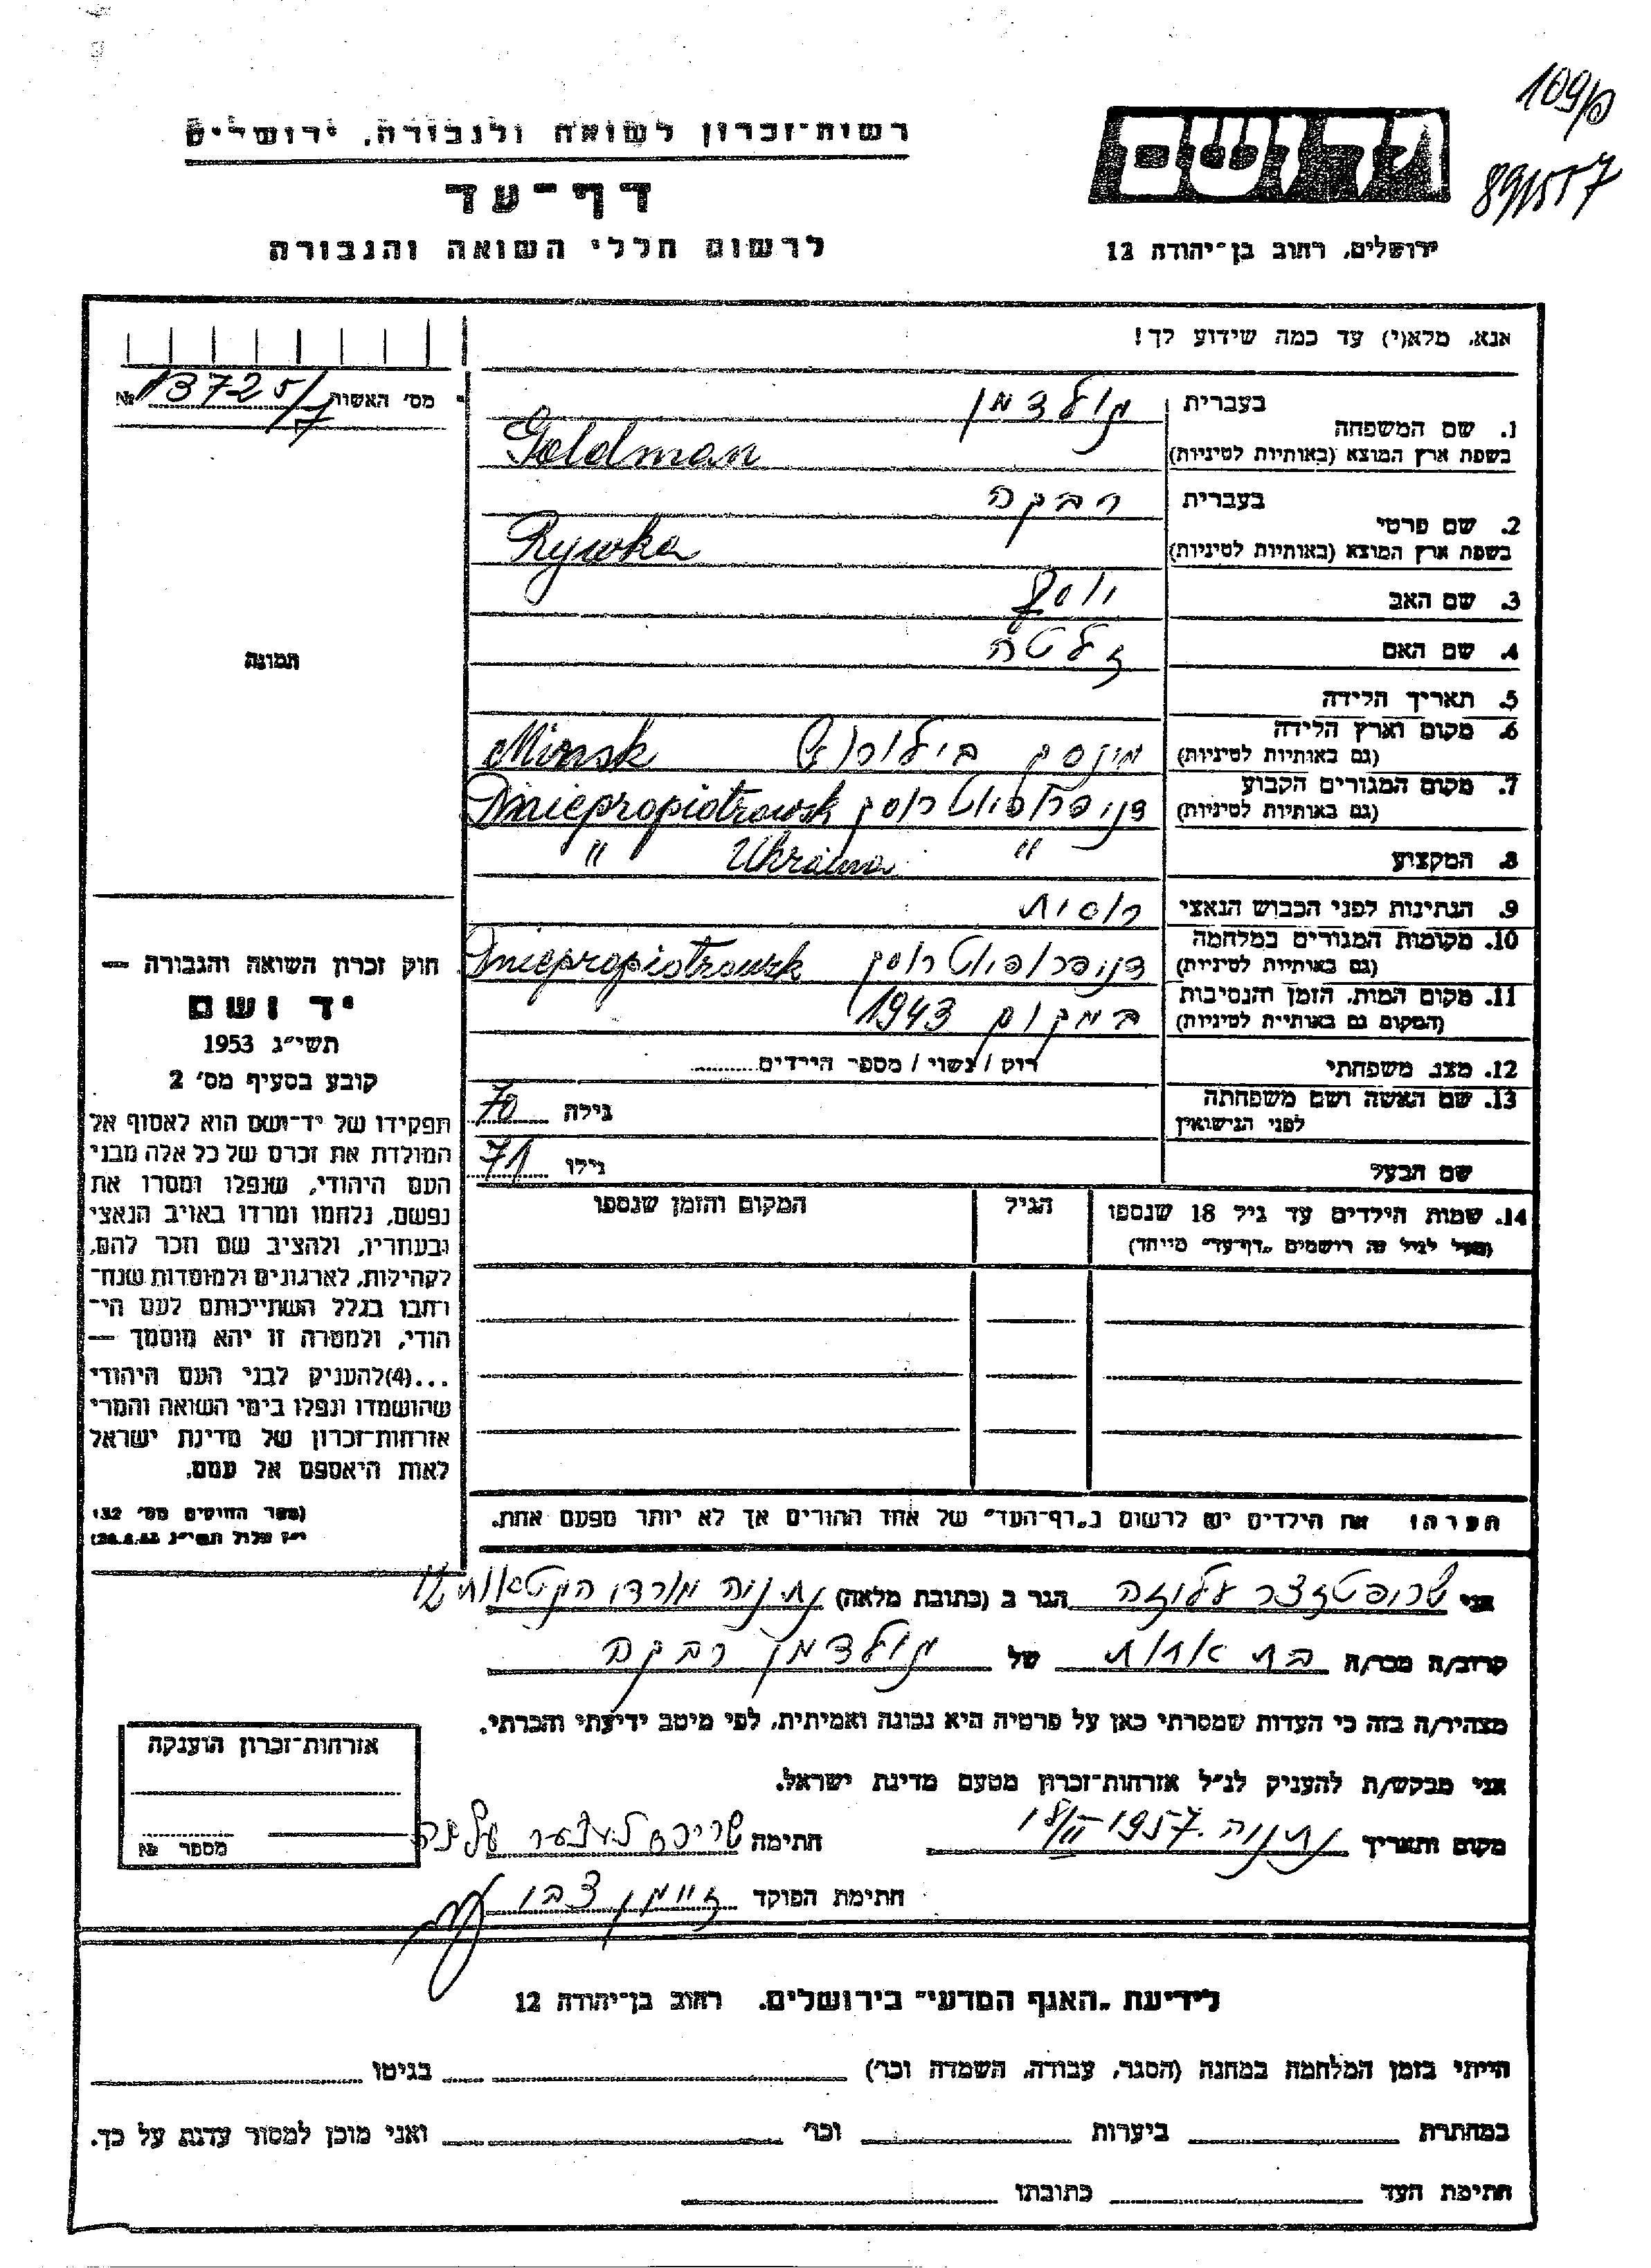 109/מ
89/557
רשות-זכרון לשואה ולגבורה, ירושלים
יד ושם
דף-עד
לרשום חללי השואה והגבורה
ירושלים, רחוב בן-יהודה 12
אנא, מלא(י) עד כמה שידוע לך!
מס' האשות
№ 13725/7
1. שם המשפחה
בעברית גולדמן
בשפת ארץ המוצא (באותיות לטיניות) Goldman
2. שם פרטי
בעברית רבקה
בשפת ארץ המוצא (באותיות לטיניות) Rywka
3. שם האב יוסף
4. שם האם זלטה
5. תאריך הלידה
6. מקום וארץ הלידה
(גם באותיות לטיניות) מינסק Minsk
7. מקום המגורים הקבוע
(גם באותיות לטיניות) דניפרופיוטרוסק Dniepropiotrowsk
8. המקצוע " Ukraina "
9. הנתינות לפני הכבוש הנאצי רוסית
10. מקומות המגורים במלחמה
(גם באותיות לטיניות) דניפרופיוטרוסק Dniepropiotrowsk
11. מקום המות, הזמן והנסיבות
(המקום גם באותיות לטיניות) במקום 1943
12. מצב משפחתי רוק / נשוי / מספר הילדים
13. שם האשה ושם משפחתה
לפני הנישואין גילה 70
שם הבעל גילו 71
14. שמות הילדים עד גיל 18 שנספו הגיל המקום והזמן שנספו
(מעל לגיל זה רושמים "דף-עד" מיוחד)
הערה: את הילדים יש לרשום ב"דף-העד" של אחד ההורים אך לא יותר מפעם אחת.
תמונה
חוק זכרון השואה והגבורה —
יד ושם
תשי"ג 1953
קובע בסעיף מס' 2
תפקידו של יד-ושם הוא לאסוף אל
המולדת את זכרם של כל אלה מבני
העם היהודי, שנפלו ומסרו את
נפשם, נלחמו ומרדו באויב הנאצי
ובעוזריו, ולהציב שם וזכר להם,
לקהילות, לארגונים ולמוסדות שנח-
רבו בגלל השתייכותם לעם הי-
הודי, ולמטרה זו יהא מוסמך —
...(4)להעניק לבני העם היהודי
שהושמדו ונפלו בימי השואה והמרי
אזרחות-זכרון של מדינת ישראל
לאות היאספם אל עמם.
(ספר החוקים מס' 132
י"ז אלול תשי"ג 28.8.53)
אני עליזה הגר ב (כתובת מלאה) נתניה
קרוב/ה מכר/ה בת אחות של גולדמן רבקה
מצהיר/ה בזה כי העדות שמסרתי כאן על פרטיה היא נכונה ואמיתית, לפי מיטב ידיעתי והכרתי.
אני מבקש/ת להעניק לנ"ל אזרחות-זכרון מטעם מדינת ישראל.
מקום ותאריך נתניה 18/II 1957 חתימה
חתימת הפוקד
אזרחות-זכרון הוענקה
מספר №
לידיעת "האגף המדעי" בירושלים, רחוב בן-יהודה 12
הייתי בזמן המלחמה במחנה (הסגר, עבודה, השמדה וכו') בגיטו
במחתרת ביערות וכו' ואני מוכן למסור עדות על כך.
חתימת העד כתובתו